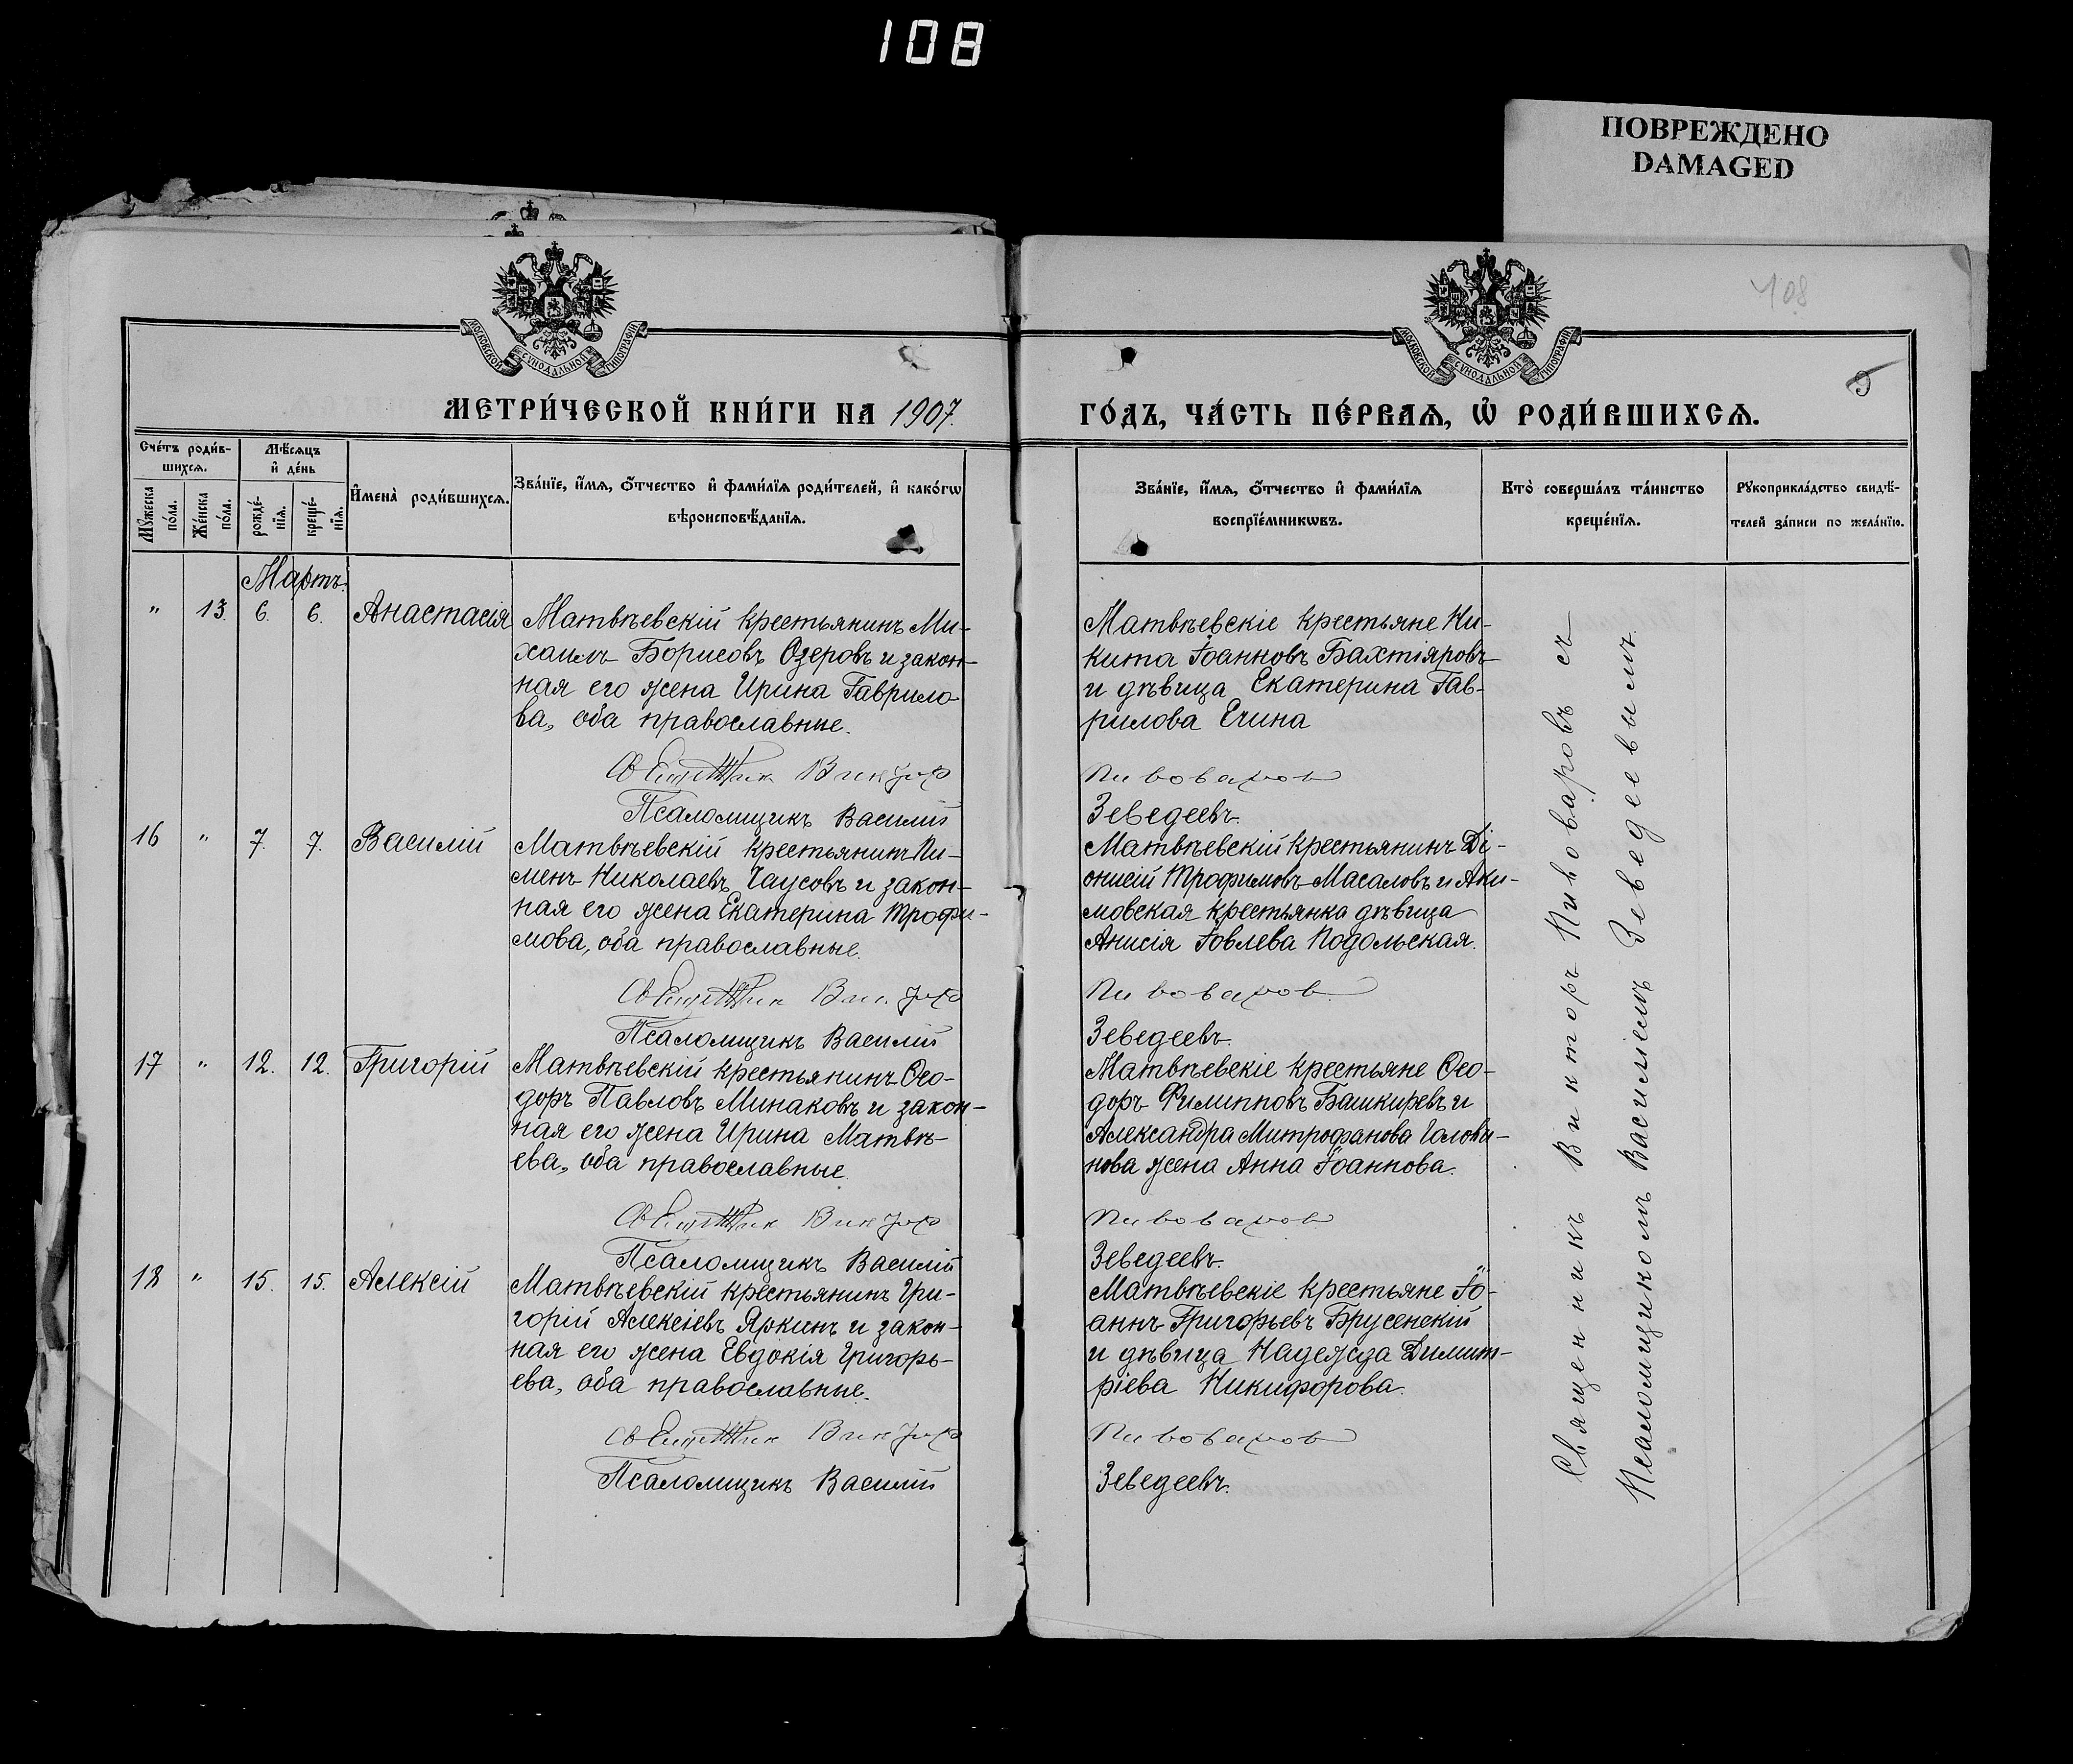 108
ПОВРЕЖДЕНО
DAMAGED
108
9
МОСКОВСКОЙ СѴНОДАЛЬНОЙ ТИПОГРАФІИ
МОСКОВСКОЙ СѴНОДАЛЬНОЙ ТИПОГРАФІИ
МЕТРИ́ЧЕСКОЙ КНИ́ГИ НА 1907.
ГО́ДЪ, ЧА́СТЬ ПЕ́РВАѦ, Ѡ҆ РОДИ́ВШИХСѦ.
Сче́тъ роди́в-
шихсѧ.
Мꙋжеска по́ла.
Же́нска по́ла.
Мѣ́сѧцъ
и҆ де́нь
рожде́-
нїѧ.
креще́-
нїѧ.
И҆мена̀ роди́вшихсѧ.
Зва́нїе, и҆́мѧ, ѻ҆́тчество и҆ фами́лїѧ роди́телей, и҆ како́гѡ
вѣроисповѣ́данїѧ.
Зва́нїе, и҆́мѧ, ѻ҆́тчество и҆ фами́лїѧ
воспрїе́мникѡвъ.
Кто̀ соверша́лъ та́инство
креще́нїѧ.
Рꙋкоприкла́дство свидѣ́-
телей за́писи по жела́нїю.
Мартъ.
" 13. 6. 6. Анастасія
Матвѣевскій крестьянинъ Ми-
хаилъ Борисовъ Озеровъ и закон-
ная его жена Ирина Гаврило-
ва, оба православные.
Священник Виктор
Псаломщикъ Василій
Матвѣевскіе крестьяне Ни-
кита Іоанновъ Бахтіяровъ
и дѣвица Екатерина Гав-
рилова Ечина
Пивоваров
Зеведеевъ.
16 " 7. 7. Василій
Матвѣевскій крестьянинъ Пи-
менъ Николаевъ Чаусовъ и закон-
ная его жена Екатерина Трофи-
мова, оба православные.
Священник Виктор
Псаломщикъ Василій
Матвѣевскій крестьянинъ Ді-
онисій Трофимовъ Масаловъ и Аки-
мовская крестьянка дѣвица
Анисія Іовлева Подольская.
Пивоваров
Зеведеевъ.
17 " 12. 12. Григорій
Матвѣевскій крестьянинъ Ѳео-
доръ Павловъ Минаковъ и закон-
ная его жена Ирина Матвѣ-
ева, оба православные.
Священник Виктор
Псаломщикъ Василій
Матвѣевскіе крестьяне Ѳео-
доръ Филипповъ Башкиревъ и
Александра Митрофанова Голови-
нова жена Анна Іоаннова.
Пивоваров
Зеведеевъ.
18 " 15. 15. Алексій
Матвѣевскій крестьянинъ Гри-
горій Алексіевъ Яркинъ и закон-
ная его жена Евдокія Григорь-
ева, оба православные.
Священник Виктор
Псаломщикъ Василій
Матвѣевскіе крестьяне Іо-
аннъ Григорьевъ Брусенскій
и дѣвица Надежда Димит-
ріева Никифорова.
Пивоваров
Зеведеевъ.
Священникъ Викторъ Пивоваровъ съ
Псаломщикомъ Василіемъ Зеведеевымъ.